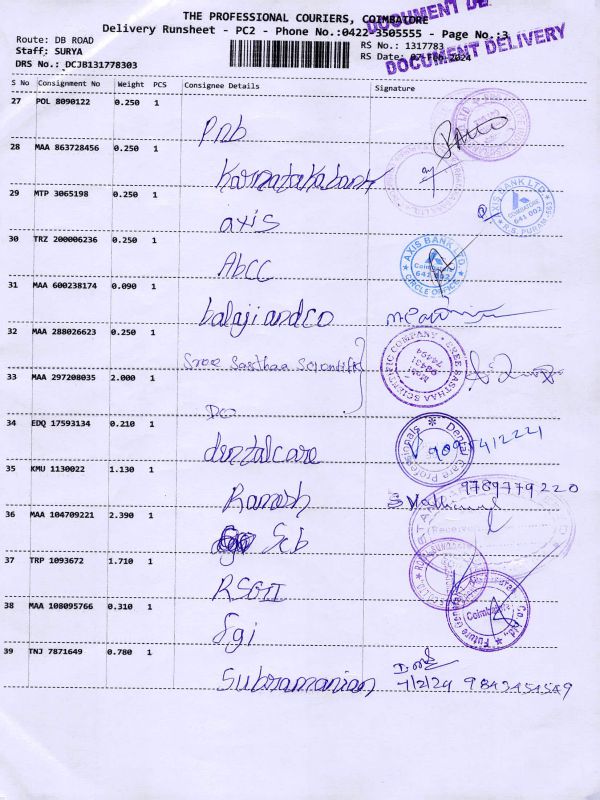 THE PROFESSIONAL COURIERS, COIMBATORE
Delivery Runsheet - PC2 - Phone No.:0422-3505555 - Page No.:3
DOCUMENT DELIVERY
Route: DB ROAD
RS No.: 1317783
Staff: SURYA
RS Date: 07-Feb-2024
DOCUMENT DELIVERY
DRS No.: DCJB131778303
S No Consignment No Weight PCS Consignee Details Signature
27 POL 8090122 0.250 1
pnb
28 MAA 863728456 0.250 1
Karnataka bank
29 MTP 3065198 0.250 1
axis
AXIS BANK LTD
COIMBATORE
641 002
R.S. PURAM
30 TRZ 200006236 0.250 1
AbCC
AXIS BANK LTD
Coimbatore
641 002
CIRCLE OFFICE
31 MAA 600238174 0.090 1
balaji andco
32 MAA 288026623 0.250 1
Sree Sasthaa Scientific
SREE SASTHAA SCIENTIFIC COMPANY
98431
74494
33 MAA 297208035 2.000 1
Do
34 EDQ 17593134 0.210 1
dentalcare
Dental Care Professionals
35 KMU 1130022 1.130 1
Ramesh
9789779220
36 MAA 104709221 2.390 1
Scb
Received
37 TRP 1093672 1.710 1
RSGII
38 MAA 108095766 0.310 1
Sgi
Coimbatore
39 TNJ 7871649 0.780 1
Subramanian
7/2/24 9843454549